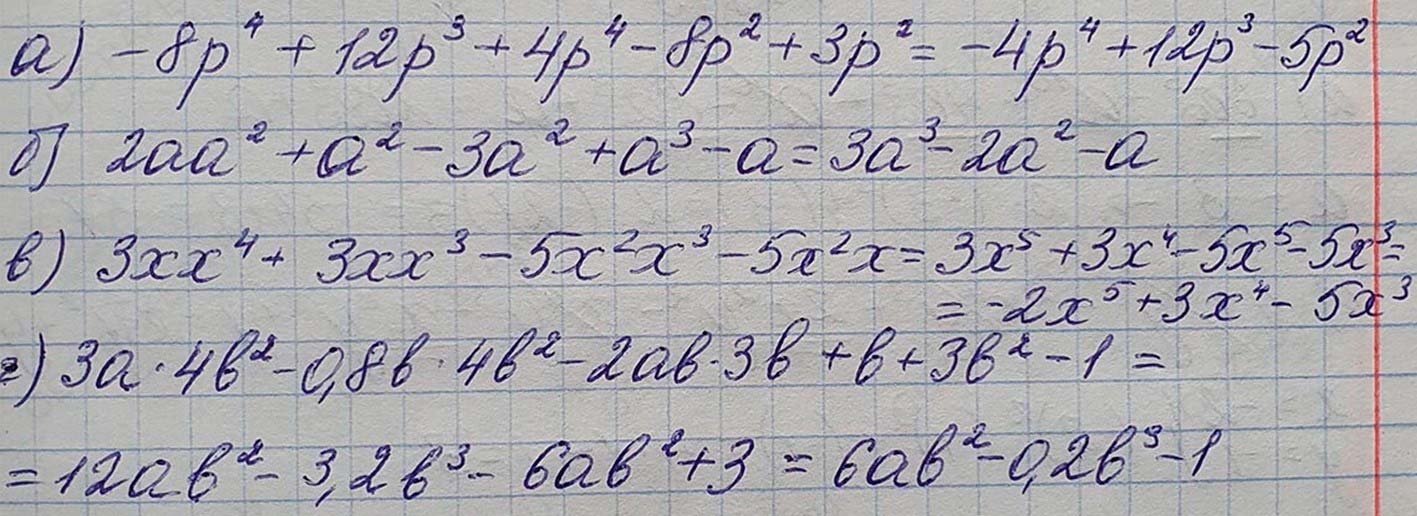 а) -8p⁴ + 12p³ + 4p⁴ - 8p² + 3p² = -4p⁴ + 12p³ - 5p²
б) 2aa² + a² - 3a² + a³ - a = 3a³ - 2a² - a
в) 3xx⁴ + 3xx³ - 5x²x³ - 5x²x = 3x⁵ + 3x⁴ - 5x⁵ - 5x³ =
= -2x⁵ + 3x⁴ - 5x³
г) 3a · 4b² - 0,8b · 4b² - 2ab · 3b + b + 3b² - 1 =
= 12ab² - 3,2b³ - 6ab² + 3 = 6ab² - 0,2b³ - 1